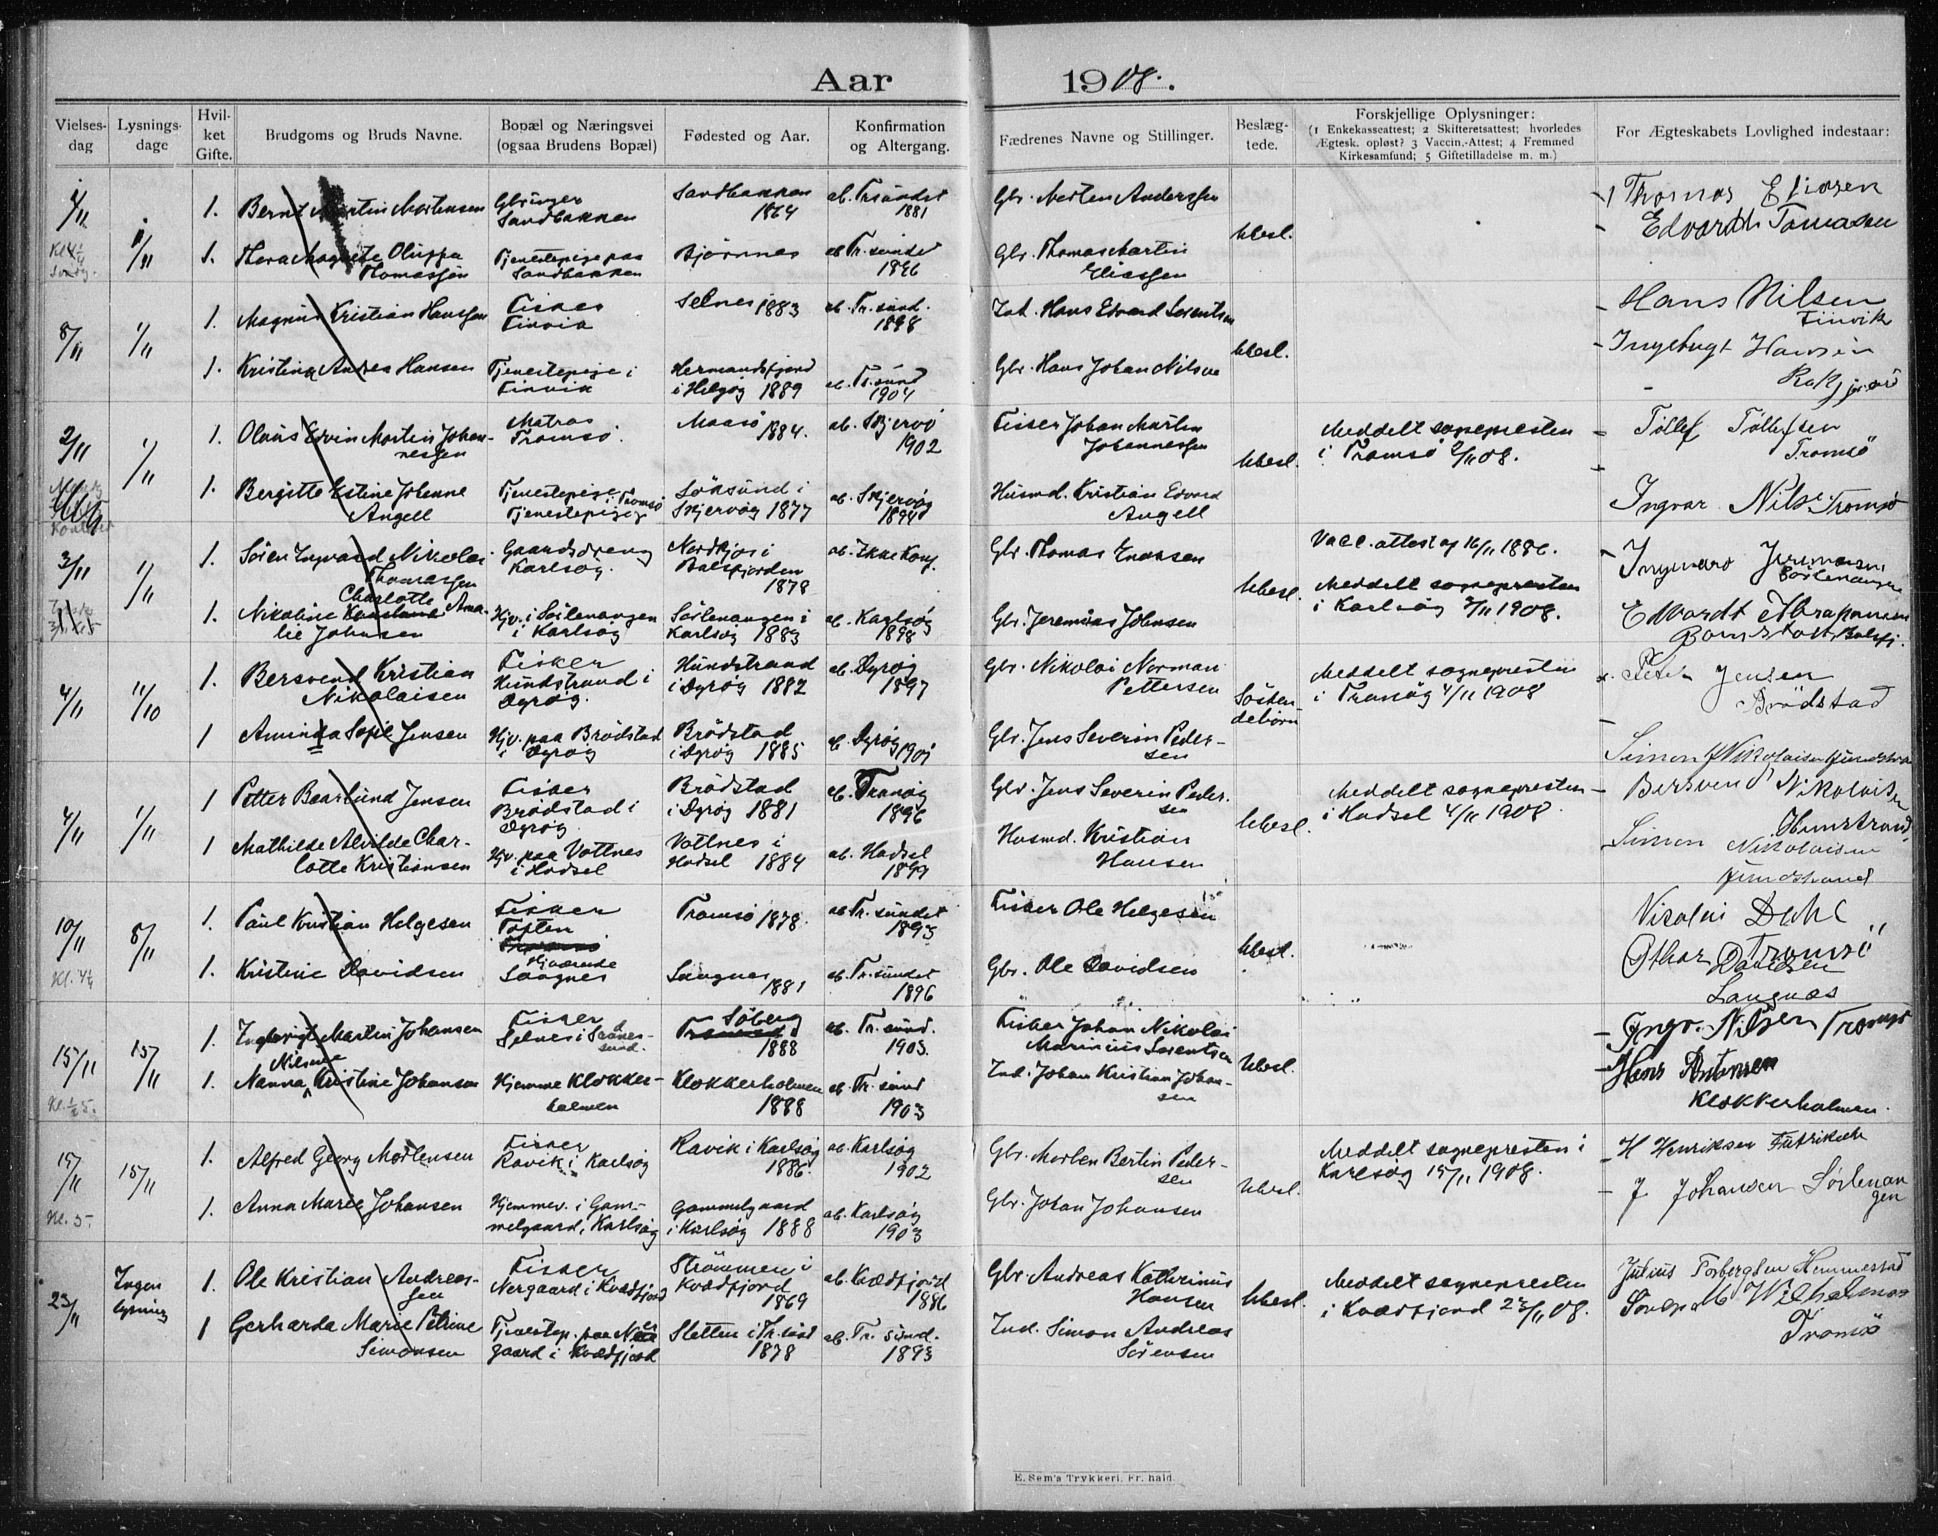 Aar 1908.
Vielses-dag
Lysnings-dage
Hvil-ket Gifte.
Brudgoms og Bruds Navne.
Bopæl og Næringsvei (ogsaa Brudens Bopæl)
Fødested og Aar.
Konfirmation og Altergang.
Fædrenes Navne og Stillinger.
Beslæg-tede.
Forskjellige Oplysninger:
(1 Enkekasseattest; 2 Skifteretsattest; hvorledes Ægtesk. opløst? 3 Vaccin.-Attest; 4 Fremmed Kirkesamfund; 5 Giftetilladelse m. m.)
For Ægteskabets Lovlighed indestaar:
1/11 1/11 1. Bernt Martin Mortensen
Sandbakken
Sandbakken 1864
1881
Gbr. Morten Anderssen
Ubesl.
Edvardt Tomassen
1. Thomassen
Tjenestepige paa Sandbakken
Bjørnnes
Tr. sundet 1896
Gbr. Thomas Martin Eliassen
8/11 1/11 1. Magnus Kristian Hanssen
Fisker Finvik
Selnes 1883
Tr. sund. 1898
Ind. Hans Edvard Sørentsen
Ubesl.
Hans Nilsen Finvik
1. Kristina Andrea Hansen
Tjenestepige i Finvik
Hermandsfjord i Helgøy 1889
Tr. sund 1904
Gbr. Hans Johan Nilsen
2/11 1/11 1. Olaus Edvin Martin Johannessen
Matros Tromsø.
Maasø 1884.
Skjervø 1902
Fisker Johan Martin Johannessen
Ubesl.
Meddelt sognepresten i Tromsø 2/11 08.
Tollef Tollefsen Tromsö
1. Bergitte Estine Johanne Angell
Tjenestepige i Tromsø
Skjervøy 1877
Skjervøy
Husmd. Kristian Edvard Angell
Ingvar Nils Tromsø
3/11 1/11 1. Søren Ingvard Nikolai Thomassen
Gaardsdreng Karlsøy.
Nordkjos i Balsfjorden 1878
Ikke Konf.
Gbr. Thomas Enoksen
Ubesl.
Vacc. attest af 16/11 1886.
Meddelt sognepresten i Karlsøy 3/11 1908.
1. Nikoline Charlotte Amalie Johnsen
Hjv. i Sørlenangen i Karlsøy
Sørlenangen i Karlsøy 1883
Karlsøy 1898
Gbr. Jeremias Johnsen
4/11 11/10 1. Bersvend Kristian Nikolaisen
Fisker Hundstrand i Dyrøy.
Hundstrand i Dyrøy 1882
Dyrøy 1897
Gbr. Nikolai Norman Pettersen
Søskendebørn
Meddelt sognepresten i Tranøy 4/11 1908
Jensen Brödstad
1 Sofie Jensen
Hjv. paa Brødstad i Dyrøy
Brødstad i Dyrøy 1885
Dyrøy 1901
Gbr. Jens Severin Pedersen
4/11 1/11 1 Petter Baarlund Jensen
Fisker Brødstad i Dyrøy
Brødstad i Dyrøy 1881
Tranøy 1896
Gbr. Jens Severin Pedersen
Ubesl.
Meddelt sognepresten i Hadsel 4/11 1908.
Bersvend Nikolaisen
1 Mathilde Alvilde Charlotte Kristiansen
Hjv. paa Vottnes i Hadsel
Vottnes i Hadsel 1884
Hadsel 1899
Husmd. Kristian Hansen
Simon Nikolaisen
10/11 8/11 1. Paul Kristian Helgesen
Fisker Toften
Tromsø 1878.
Tr. sundet 1893
Fisker Ole Helgesen
Ubesl.
Nikolai Dahl Tromsö
1. Kristine Davidsen
Hjværende
1881
Tr. sundet 1896
Gbr. Ole Davidsen
Othar Davidsen Langnæs
15/11 15/11 1. Martin Johansen
Fisker Selnes
Søberg 1888
Tr. sund. 1903.
Fisker Johan Nikolai Marinius Sørentsen
Ubesl.
Nilsen Tromsø
1. Nanna Nilsine Kristine Johansen
Hjemme Klokkerholmen
Klokkerholmen 1888
Tr. sund 1903
Ind. Johan Kristian Johansen
Hans Antonsen Klokkerholmen.
15/11 15/11 1. Alfred Georg Mortensen
Fisker Ravik i Karlsøy
Ravik i Karlsøy 1886.
Karlsøy 1902
Gbr. Morten Bertin Pedersen
Ubesl.
Meddelt sognepresten i Karlsøy 15/11 1908.
H Henriksen
Kl. 5
1. Anna Marie Johansen
Hjemmev. i Gammelgaard, Karlsøy
Gammelgaard i Karlsøy 1888
Karlsøy 1903
Gbr. Johan Johansen
J Johansen Sørlenangen
23/11 Ingen lysning 1. Ole Kristian Andreassen
Fisker Nergaard i Kvædfjord
Strømmen i Kvædfjord 1869
Kvædfjord 1886
Gbr Andreas Kathrinus Hansen
Ubesl.
Meddelt sognepresten i Kvædfjord 23/11 08.
Julius Torbergsen Hemmestad
1 Gerharda Marie Petrine Simonsen
Tjenestep. paa Nergaard i Kvædfjord
Sletten i Tr. sund 1878
Tr. sund. 1893
Ind. Simon Andreas Sørensen
Tromsø
E. Sem's Trykkeri, Fr. hald.